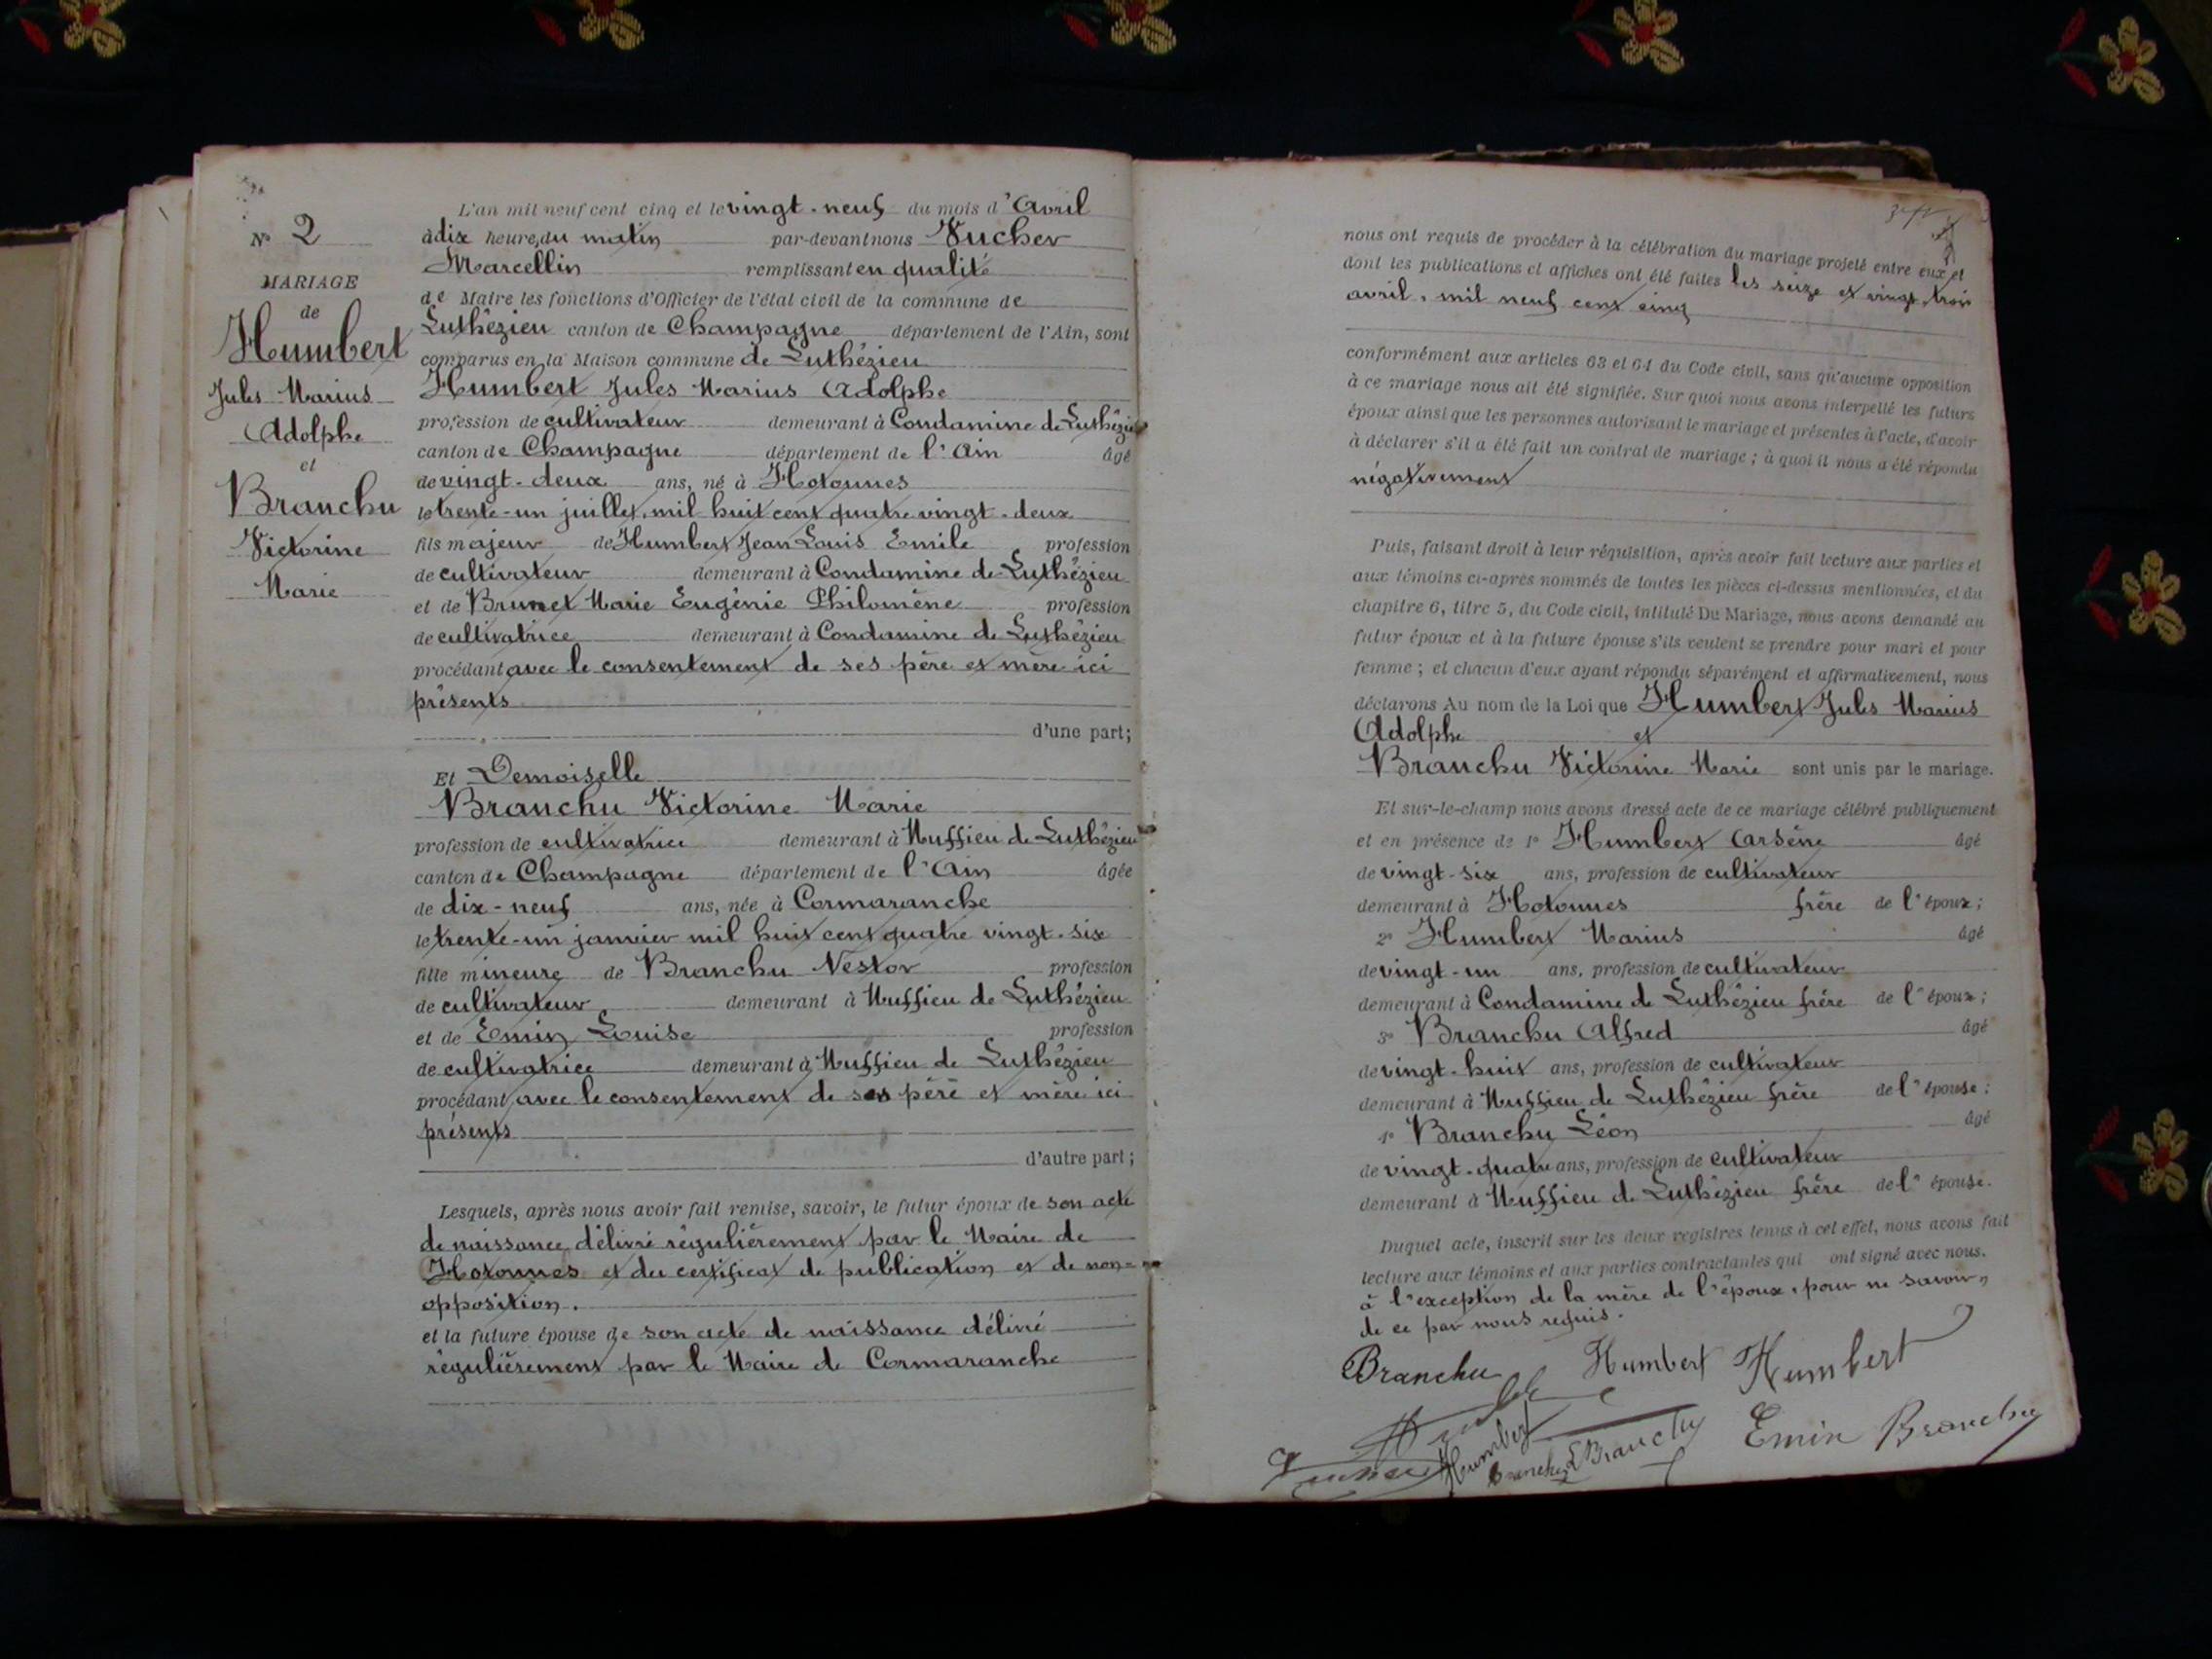 N° 2
MARIAGE
de
Humbert
Jules Marius
Adolphe
et
Branchu
Victorine
Marie
L'an mil neuf cent cinq et le vingt-neuf du mois d'Avril
à dix heure, du matin par-devant nous Vucher
Marcellin remplissant en qualité
de Maire les fonctions d'Officier de l'état civil de la commune de
Luthézieu canton de Champagne département de l'Ain, sont
comparus en la Maison commune de Luthézieu
Humbert Jules Marius Adolphe
profession de cultivateur demeurant à Condamine de Luthézieu
canton de Champagne département de l'Ain âgé
de vingt-deux ans, né à Hotonnes
le trente-un juillet, mil huit cent quatre vingt-deux
fils majeur de Humbert Jean Louis Emile profession
de cultivateur demeurant à Condamine de Luthézieu
et de Brunet Marie Eugénie Philomène profession
de cultivatrice demeurant à Condamine de Luthézieu
procédant avec le consentement de ses père et mère ici
présents
d'une part;
Et Demoiselle
Branchu Victorine Marie
profession de cultivatrice demeurant à Muffieu de Luthézieu
canton de Champagne département de l'Ain âgée
de dix-neuf ans, née à Cormaranche
le trente-un janvier mil huit cent quatre vingt-six
fille mineure de Branchu Nestor profession
de cultivateur demeurant à Muffieu de Luthézieu
et de Emin Louise profession
de cultivatrice demeurant à Muffieu de Luthézieu
procédant avec le consentement de ses père et mère ici
présents
d'autre part;
Lesquels, après nous avoir fait remise, savoir, le futur époux de son acte
de naissance délivré régulièrement par le Maire de
Hotonnes et du certificat de publication et de non=
opposition.
et la future épouse de son acte de naissance délivré
régulièrement par le Maire de Cormaranche
nous ont requis de procéder à la célébration du mariage projeté entre eux et
dont les publications et affiches ont été faites les seize et vingt-trois
avril, mil neuf cent cinq
conformément aux articles 63 et 64 du Code civil, sans qu'aucune opposition
à ce mariage nous ait été signifiée. Sur quoi nous avons interpellé les futurs
époux ainsi que les personnes autorisant le mariage et présentes à l'acte, d'avoir
à déclarer s'il a été fait un contrat de mariage; à quoi il nous a été répondu
négativement
Puis, faisant droit à leur réquisition, après avoir fait lecture aux parties et
aux témoins ci-après nommés de toutes les pièces ci-dessus mentionnées, et du
chapitre 6, titre 5, du Code civil, intitulé Du Mariage, nous avons demandé au
futur époux et à la future épouse s'ils veulent se prendre pour mari et pour
femme; et chacun d'eux ayant répondu séparément et affirmativement, nous
déclarons Au nom de la Loi que Humbert Jules Marius
Adolphe et
Branchu Victorine Marie sont unis par le mariage.
Et sur-le-champ nous avons dressé acte de ce mariage célébré publiquement
et en présence de 1° Humbert Arsène âgé
de vingt-six ans, profession de cultivateur
demeurant à Hotonnes frère de l'époux;
2° Humbert Marius âgé
de vingt-un ans, profession de cultivateur
demeurant à Condamine de Luthézieu frère de l'époux;
3° Branchu Alfred âgé
de vingt-huit ans, profession de cultivateur
demeurant à Muffieu de Luthézieu frère de l'épouse;
4° Branchu Léon âgé
de vingt-quatre ans, profession de cultivateur
demeurant à Muffieu de Luthézieu frère de l'épouse.
Duquel acte, inscrit sur les deux registres tenus à cet effet, nous avons fait
lecture aux témoins et aux parties contractantes qui ont signé avec nous.
à l'exception de la mère de l'époux, pour ne savoir,
de ce par nous requis.
Branchu Humbert Humbert
Humbert Branchu LBranchu Emin Branchu
Vucher